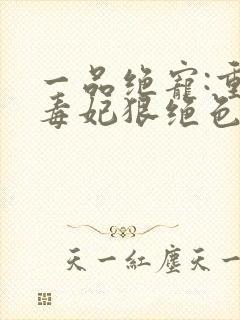 一品绝宠:重
毒妃狠绝色
天一紅塵天一